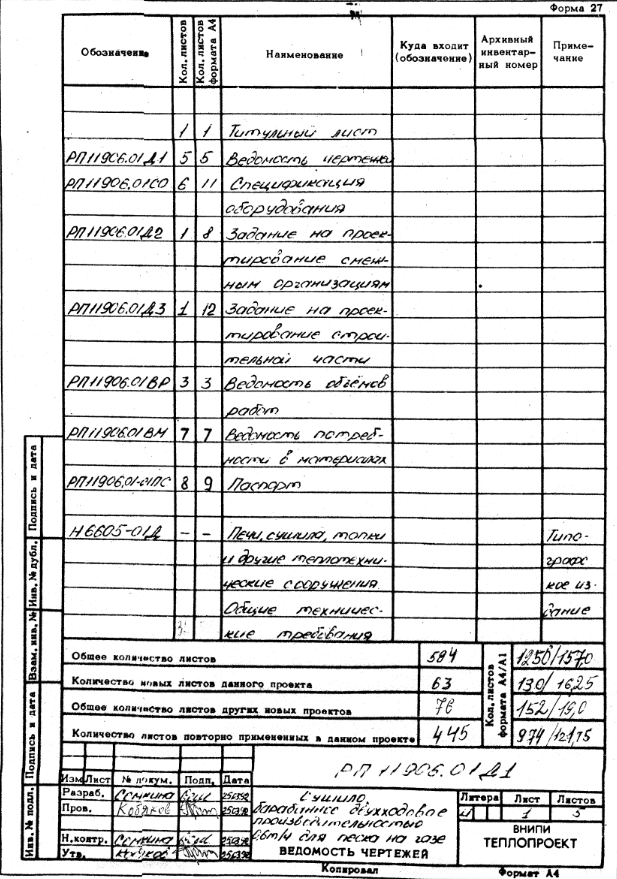 Форма 27
Обозначение Кол. листов Кол. листов формата А4 Наименование Куда входит (обозначение) Архивный инвентарный номер Примечание
1 1 Титульный лист
РП11906.01Д1 5 5 Ведомость чертежа
РП11906.01СО 6 11 Спецификация
оборудования
РП11906.01Д2 1 8 Задание на проек-
тирование смеж-
ным организациям
РП11906.01Д3 1 12 Задание на проек-
тирование строи-
тельной части
РП11906.01ВР 3 3 Ведомость объёмов
работ
РП11906.01ВМ 7 7 Ведомость потреб-
ности в материалах
РП11906.01-01ПС 8 9 Паспорт
Н6605-01Д - - Печи, сушила, топки Типо-
и другие теплотехни- графс
ческие сооружения. кое из-
Общие техничес- дание
кие требования
Общее количество листов 584 Кол. листов формата А4/А1 1250/1570
Количество новых листов данного проекта 63 130/16,25
Общее количество листов других новых проектов 76 152/19,0
Количество листов повторно примененных в данном проекте 445 974/121,75
РП 11906.01Д1
Изм Лист № докум. Подп. Дата
Разраб. Семкина
Пров. Кобяков
Н.контр. Семкина
Утв.
Сушило
барабанное двухходовое
производительностью
для песка на газе
ВЕДОМОСТЬ ЧЕРТЕЖЕЙ
Литера Лист Листов
1 5
ВНИПИ
ТЕПЛОПРОЕКТ
Копировал Формат А4
Инв. № подл. Подпись и дата Взам. инв. № Инв. № дубл. Подпись и дата